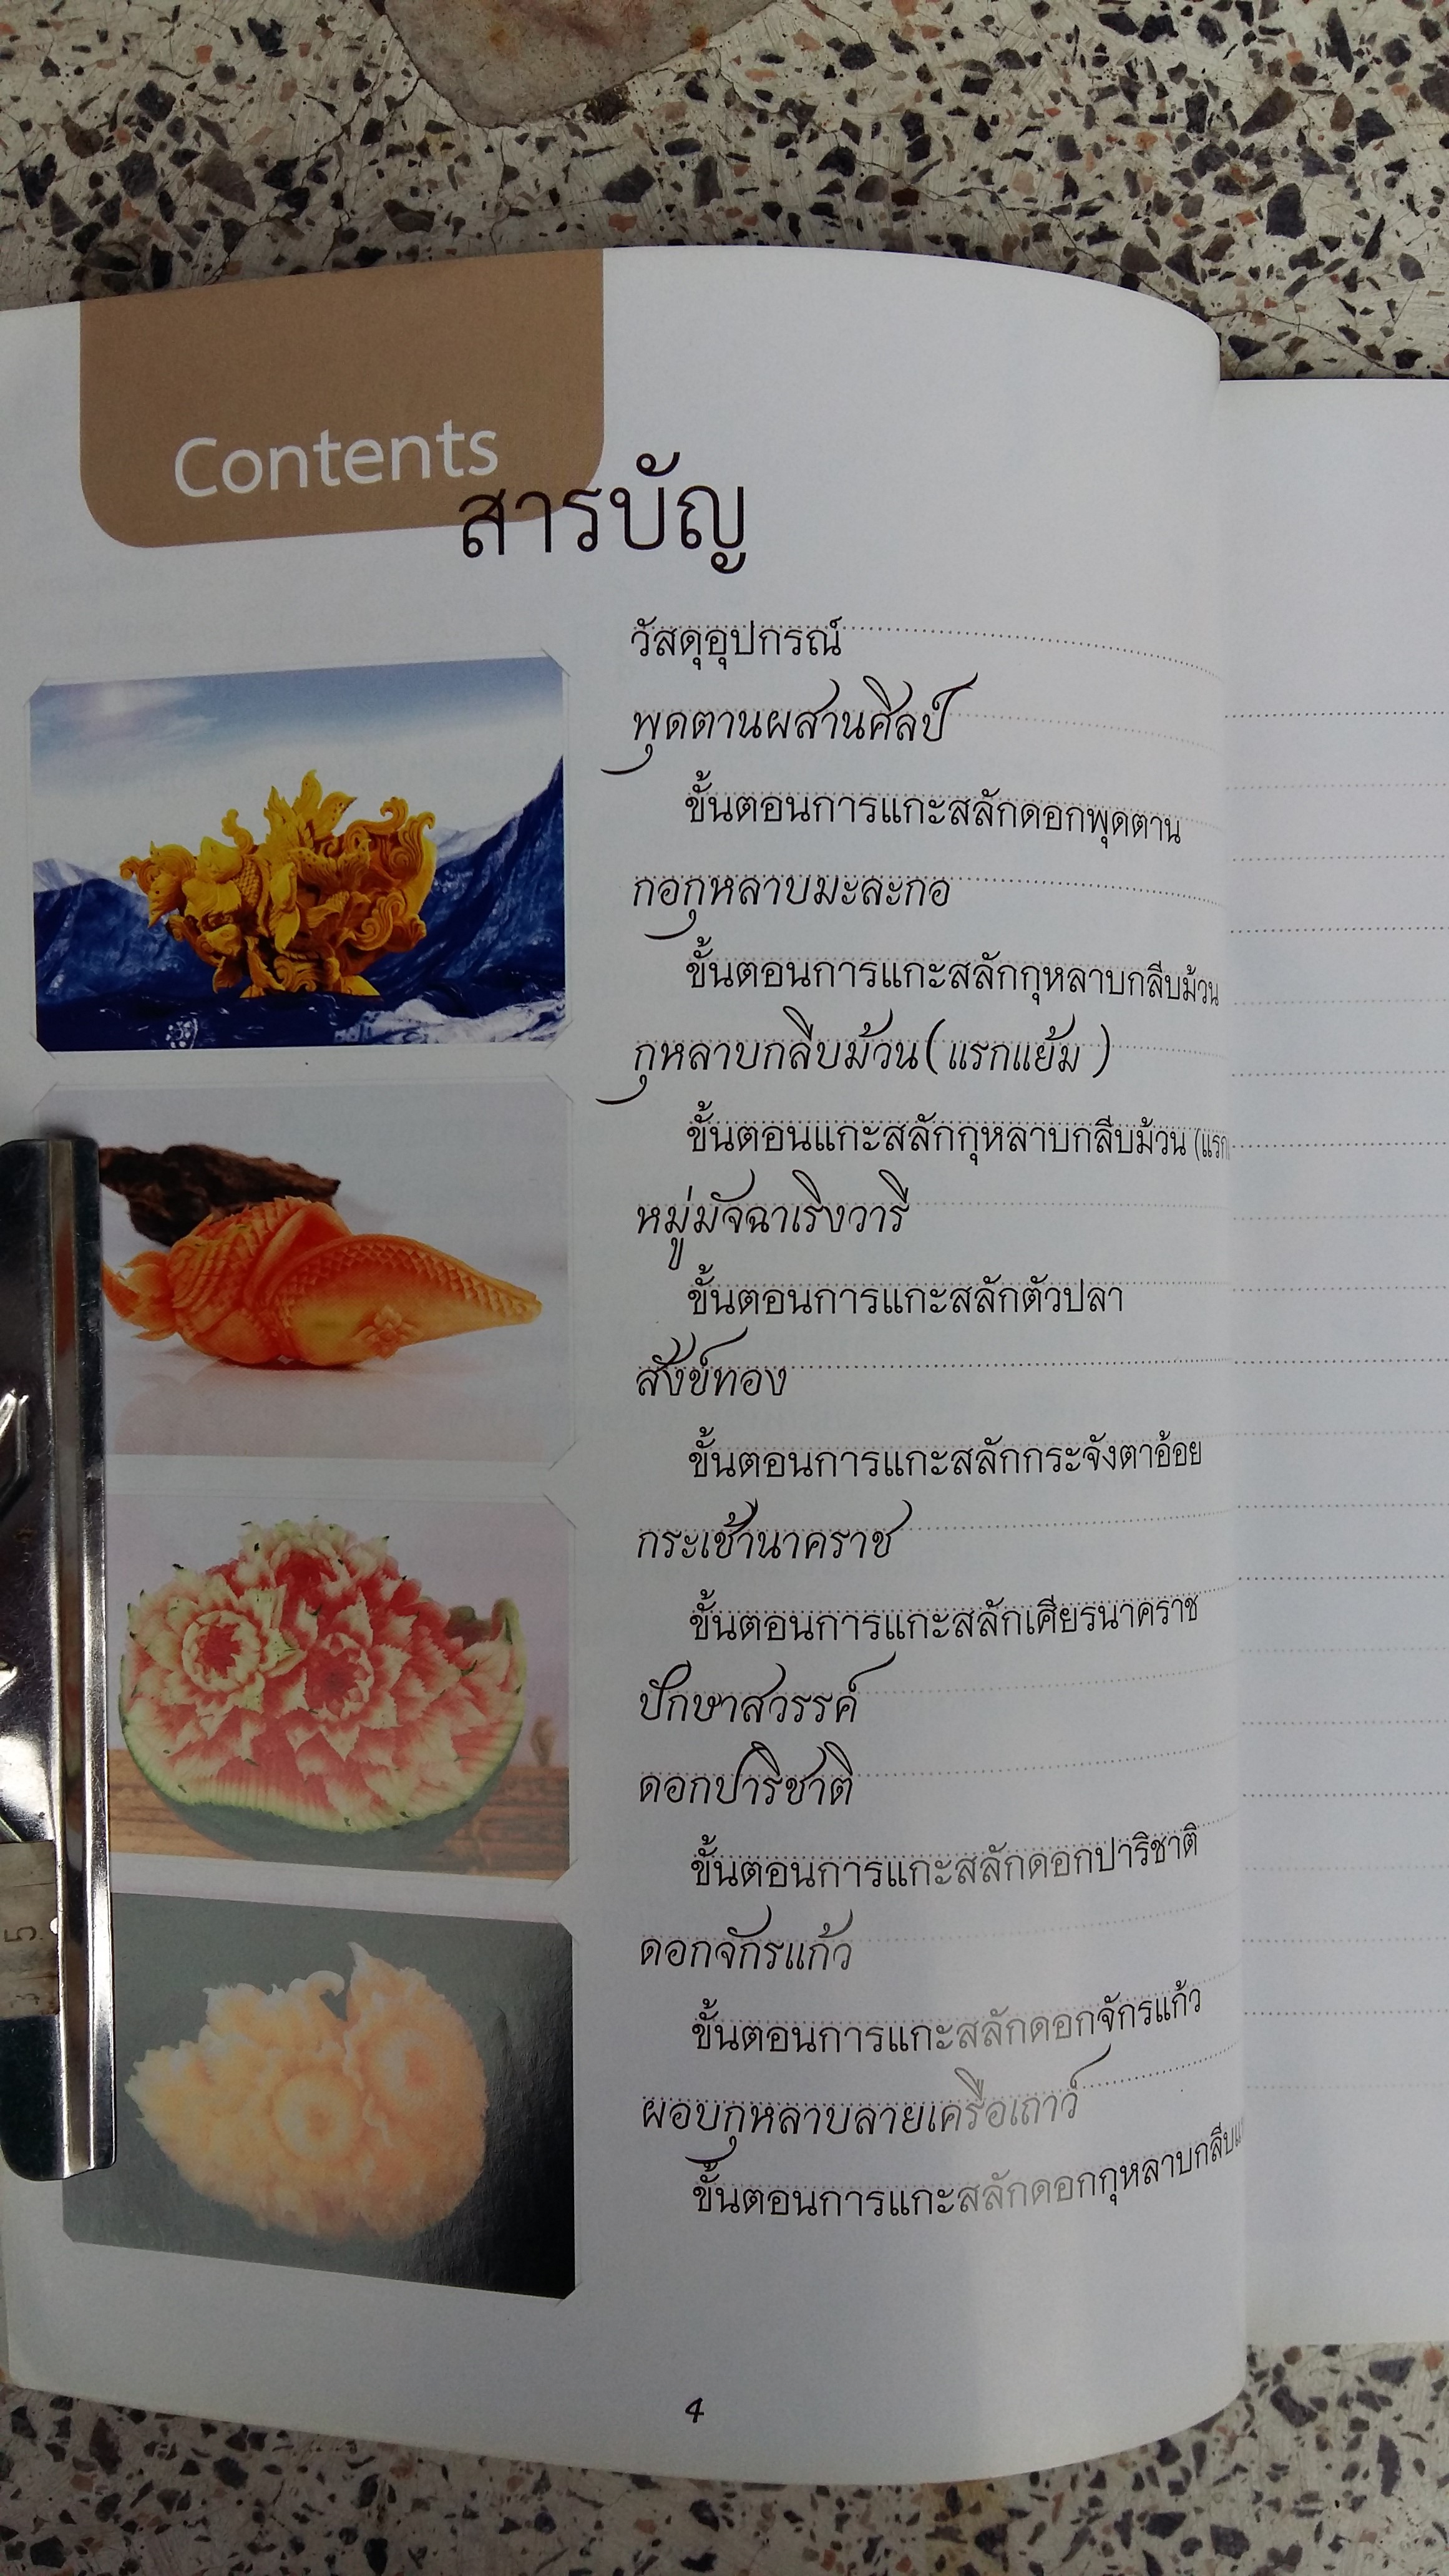 Contents
สารบัญ
วัสดุอุปกรณ์
พุดตานผสานศิลป์
ขั้นตอนการแกะสลักดอกพุดตาน
กอกุหลาบมะละกอ
ขั้นตอนการแกะสลักกุหลาบกลีบม้วน
กุหลาบกลีบม้วน (แรกแย้ม)
ขั้นตอนแกะสลักกุหลาบกลีบม้วน (แรก
หมู่มัจฉาเริงวารี
ขั้นตอนการแกะสลักตัวปลา
สังข์ทอง
ขั้นตอนการแกะสลักกระจังตาอ้อย
กระเช้านาคราช
ขั้นตอนการแกะสลักเศียรนาคราช
ปักษาสวรรค์
ดอกปาริชาติ
ขั้นตอนการแกะสลักดอกปาริชาติ
ดอกจักรแก้ว
ขั้นตอนการแกะสลักดอกจักรแก้ว
ผอบกุหลาบลายเครือเถาว์
ขั้นตอนการแกะสลักดอกกุหลาบกลีบ
4
5